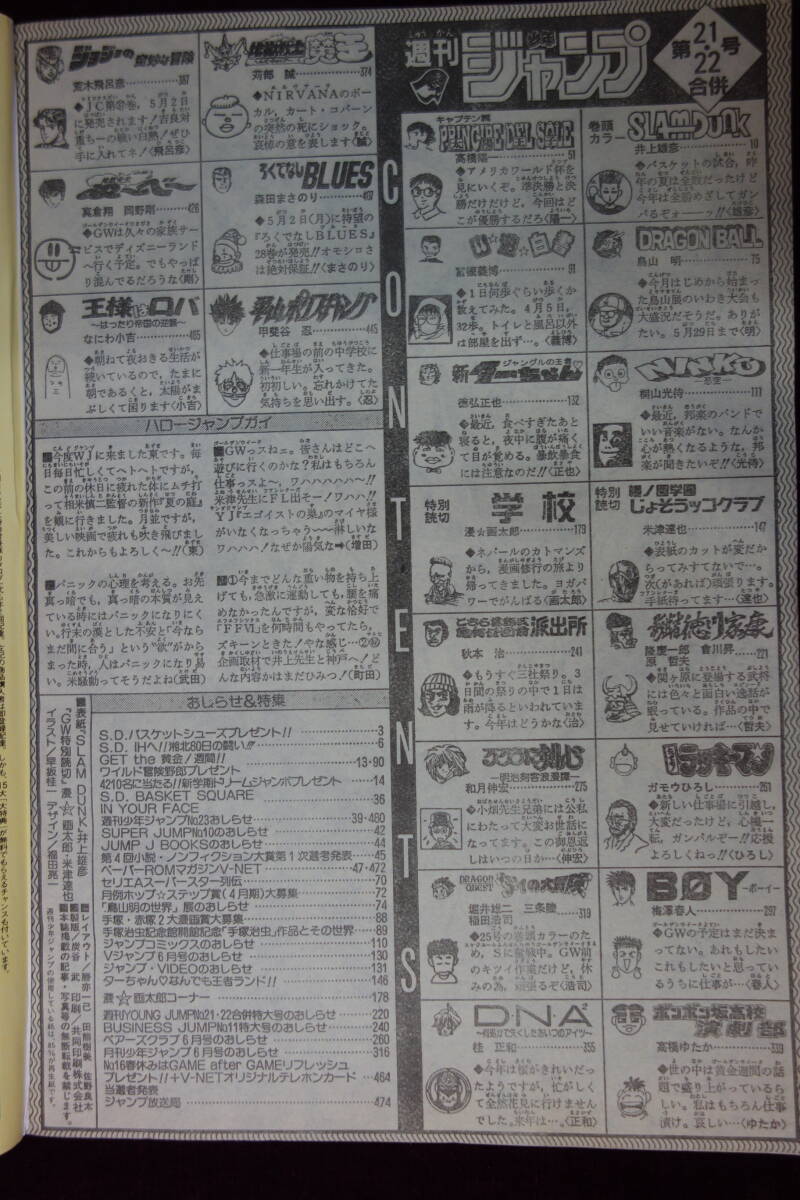 週刊
少年
ジャンプ
第21・22号
合併
CONTENTS
巻頭
カラー
SLAM DUNK
井上雄彦
10
◆バスケットの試合、昨
年の夏は全敗だったけど
今年は全勝めざしてガン
バるぞォーーッ!!〈雄彦〉
キャプテン翼
高橋陽一
51
◆アメリカワールド杯を
見にいくぞ。準決勝と決
勝だけだけど、今回はど
こが優勝するだろ〈陽一〉
DRAGON BALL
鳥山 明
75
◆今月はじめから始まっ
た鳥山展のいわき大会も
大盛況だそうだ。ありが
たい。5月29日まで〈明〉
冨樫義博
91
◆1日何歩ぐらい歩くか
数えてみた。4月5日、
32歩。トイレと風呂以外
は部屋を出ず…。〈義博〉
NINKU
―忍空―
桐山光侍
111
◆最近、邦楽のバンドで
いい音楽がない。なんか
心が熱くなるような、邦
楽が聞きたいぞ!!〈光侍〉
新
ジャングルの王者
ターちゃん♡
徳弘正也
132
◆最近、食べすぎたあと
寝ると、夜中に腹が痛く
て目が覚める。暴飲暴食
には注意なのだ!!〈正也〉
特別
読切
じょそうラッコクラブ
米津達也
147
◆表紙のカットが変だか
らってみすてないで…。
次(があれば)頑張ります。
手紙待ってます…〈達也〉
特別
読切
学校
漫☆画太郎
179
◆ネパールのカトマンズ
から、漫画修行の旅より
帰ってきました。ヨガパ
ワーでがんばる〈画太郎〉
隆慶一郎 會川昇
原 哲夫
221
◆関ヶ原に登場する武将
には色々と面白い逸話が
眠っている。作品の中で
見せていければ…〈哲夫〉
派出所
秋本 治
241
◆もうすぐ三社祭り。3
日間の祭りの中で1日は
雨が降るといわれていま
す。今年はどうかな〈治〉
ラッキーマン
ガモウひろし
261
◆新しい仕事場に引越し。
大変だったけど、心機一
転、ガンバルぞー!!応援
よろしくねっ!!〈ひろし〉
るろうに剣心
―明治剣客浪漫譚―
和月伸宏
275
◆小畑先生兄弟には公私
にわたって大変お世話に
なってます。この御恩返
しはいつの日か…〈伸宏〉
BØY
―ボーイ―
梅澤春人
297
◆GWの予定はまだ決ま
ってない。あれもしたい
これもしたいと思ってい
るうちに仕事が…〈春人〉
DRAGON QUEST
ダイの大冒険
堀井雄二 三条陸
稲田浩司
319
◆25号の巻頭カラーのた
め、Sに奮戦中。GW前
のキツイ作業だけど、休
みの為、頑張るぞ〈浩司〉
ボンボン坂高校
演劇部
高橋ゆたか
339
◆世の中は黄金週間の話
題で盛り上がっているら
しい。私はもちろん仕事
漬け。哀しい…〈ゆたか〉
DNA²
桂 正和
355
◆今年は桜がきれいだっ
たようですが、忙がしく
て全然花見に行けません
でした。来年は…。〈正和〉
魔王
苅部 誠
374
◆NIRVANAのボー
カル、カート・コバーン
の突然の死にショック。
哀悼の意を表します〈誠〉
ジョジョの奇妙な冒険
荒木飛呂彦
◆JC第37巻、5月2日
に発売されます!吉良対
重ちーの戦い白熱!ぜひ
手に入れてネ!〈飛呂彦〉
ろくでなしBLUES
森田まさのり
◆5月2日(月)に待望の
『ろくでなしBLUES』
28巻が発売!!オモシロさ
は絶対保証!!〈まさのり〉
真倉翔 岡野剛
426
◆GWは久々の家族サー
ビスでディズニーランド
へ行く予定。でもやっぱ
り混んでるだろうな〈剛〉
甲斐谷 忍
445
◆仕事場の前の中学校に
新一年生が入ってきた。
初初しい。忘れかけてた
気持ちを思い出す。〈忍〉
王様はロバ
～はったり帝国の逆襲～
なにわ小吉
465
◆朝ねて夜おきる生活が
続いているので、たまに
朝であるくと、太陽がま
ぶしくて困ります〈小吉〉
ハロージャンプガイ
■GWっスねェ。皆さんはどこへ
遊びに行くのかな?私はもちろん
仕事っスよ～、ワハハハハ～!!
米津先生にFL出そー!ワハハ!!
YJ『エゴイストの菜』のマイヤ様
がいなくなっちゃう～～淋しいな
ワハハハ!なぜか陽気な➡〈増田〉
■今度WJに来ました東です。毎
日毎日忙しくてヘトヘトですが、
この前の休日に疲れた体にムチ打
って相米慎二監督の新作『夏の庭』
を観に行きました。月並ですが、
美しい映画で疲れも吹き飛びまし
た。これからもよろしく～!!〈東〉
■①今までどんな重い物を持ち上
げても、急激に運動しても、腰を痛
めなかったんですが、変な恰好で
『FFⅥ』を何時間もやってたら、
ズキーンときた!やな感じ…②㊙
企画取材で井上先生と神戸へ!ど
んな内容かはまだひみつ!〈町田〉
■パニックの心理を考える。お先
真っ暗でも、真っ暗の本質が見え
ている時にはパニックになりにく
い。行末の漠とした不安と「今なら
まだ間に合う」という“欲”がから
まった時、人はパニックになり易
い。米騒動ってそうだよね〈武田〉
おしらせ&特集
S.D.バスケットシューズプレゼント!! 3
S.D. IHへ!!湘北80日の闘い!! 6
GET the 黄金!週間!! 13・90
ワイルド冒険野郎プレゼント
4210名に当たる!!新学期ドリームジャンボプレゼント 14
S.D. BASKET SQUARE 36
IN YOUR FACE
週刊少年ジャンプNo.23おしらせ 39・460
SUPER JUMP No.10のおしらせ 42
JUMP J BOOKSのおしらせ 44
第4回小説・ノンフィクション大賞第1次選考発表 45
ペーパーROMマガジンV-NET 47・472
セリエAスーパースター列伝 70
月例ホップ☆ステップ賞(4月期)大募集 72
「鳥山明の世界」展のおしらせ 74
手塚・赤塚2大漫画賞大募集 88
手塚治虫記念館開館記念「手塚治虫」作品とその世界 89
ジャンプコミックスのおしらせ 110
Vジャンプ6月号のおしらせ 130
ジャンプ・VIDEOのおしらせ 131
ターちゃん♡なんでも王者ランド!! 146
漫☆画太郎コーナー 178
週刊YOUNG JUMP21・22合併特大号のおしらせ 220
BUSINESS JUMP No.11特大号のおしらせ 240
ベアーズクラブ6月号のおしらせ 260
月刊少年ジャンプ6月号のおしらせ 316
No.16春休みはGAME after GAMEリフレッシュ
プレゼント!!+V-NETオリジナルテレホンカード 464
当選者発表
ジャンプ放送局 474
■表紙『SLAM DUNK』井上雄彦
『GW特別読切』漫☆画太郎・米津達也
イラスト/早坂桂一 デザイン/福田亮一
■レイアウト/勝亦一己 田能樹英 佐野良太
■製版/炭谷 武 印刷/共同印刷株式会社
■本誌掲載の記事・写真等の無断転載を禁じます。
週刊少年ジャンプの使用している紙は、85%が再生紙です。